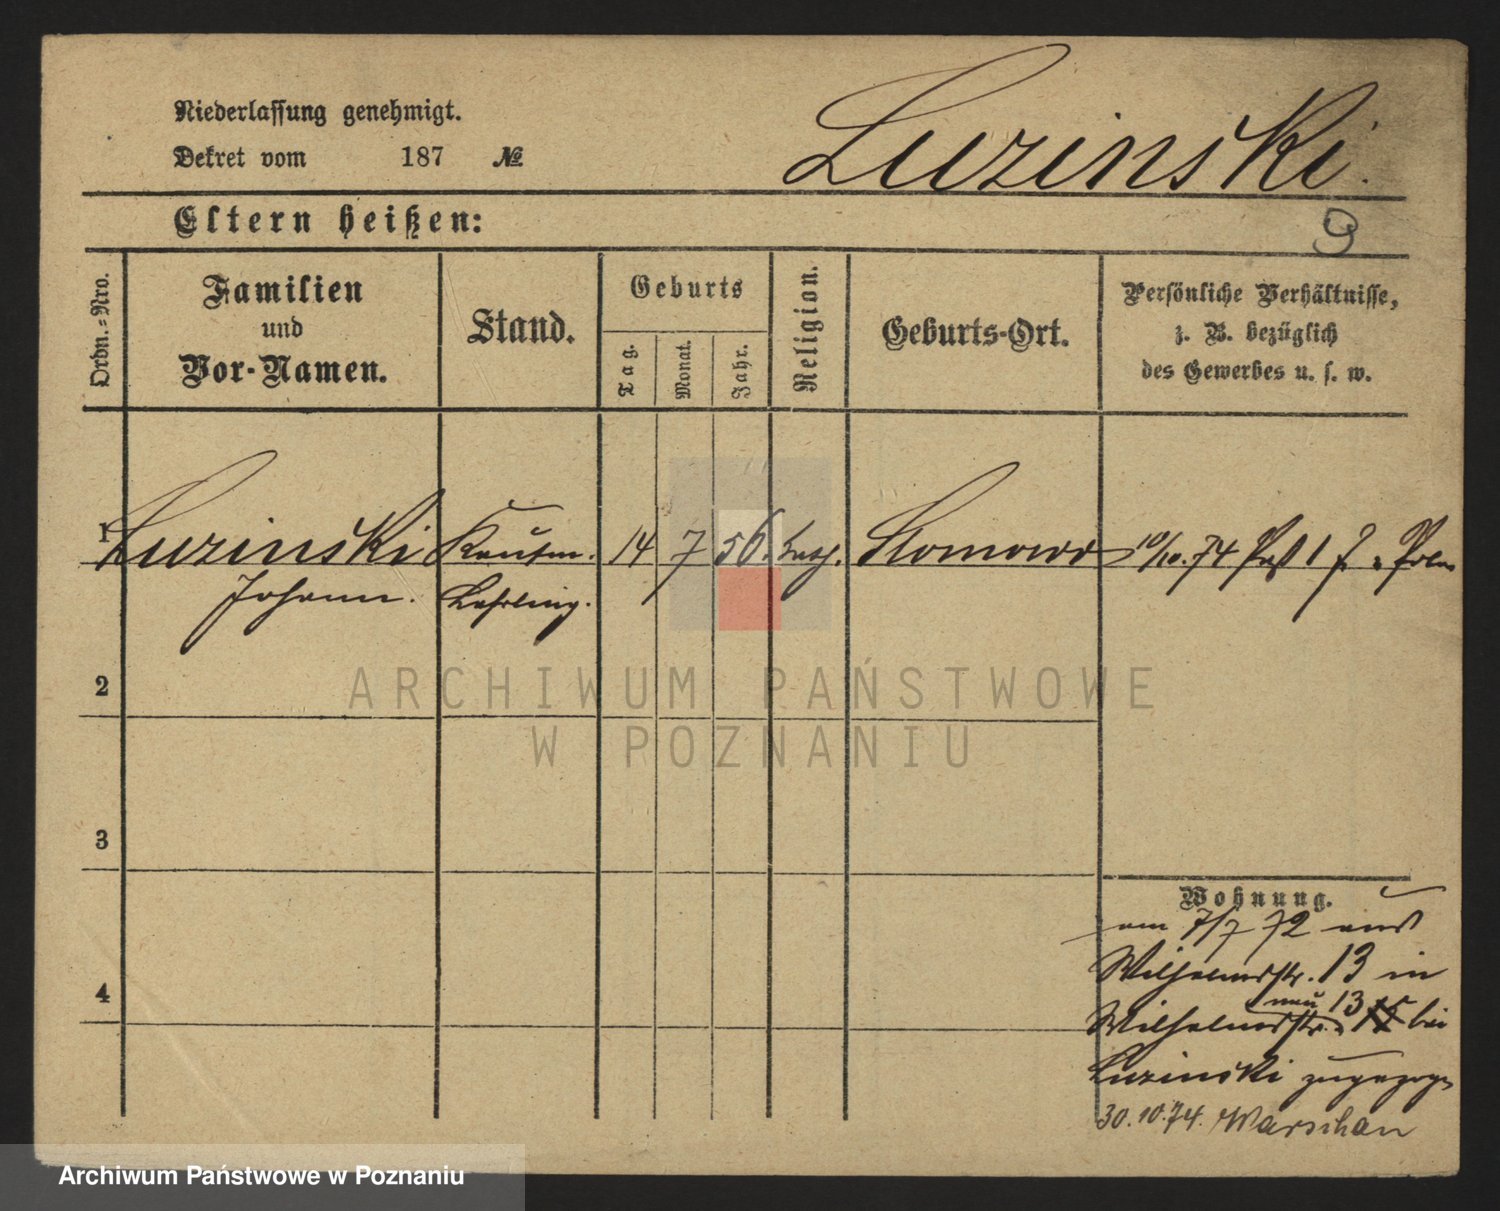 Niederlassung genehmigt.
Dekret vom 187 №
Luzinski.
Eltern heißen:
9
Ordn.=Nro.
Familien
und
Vor-Namen.
Stand.
Geburts
Tag.
Monat.
Jahr.
Religion.
Geburts-Ort.
Persönliche Verhältnisse,
z. B. bezüglich
des Gewerbes u. s. w.
1 Luzinski Kaufm. 14 7 56. kath. Slomowo 10/10. 74 Paß 1 J. n Polen
Johann. Lehrling.
2
ARCHIWUM PAŃSTWOWE
W POZNANIU
3
4
Wohnung.
am 7/7 72 aus
Wilhelmstr. 13 in
neu 13
Wilhelmstr. 15 bei
Luzinski zugezogen
30.10.74. Warschau
Archiwum Państwowe w Poznaniu